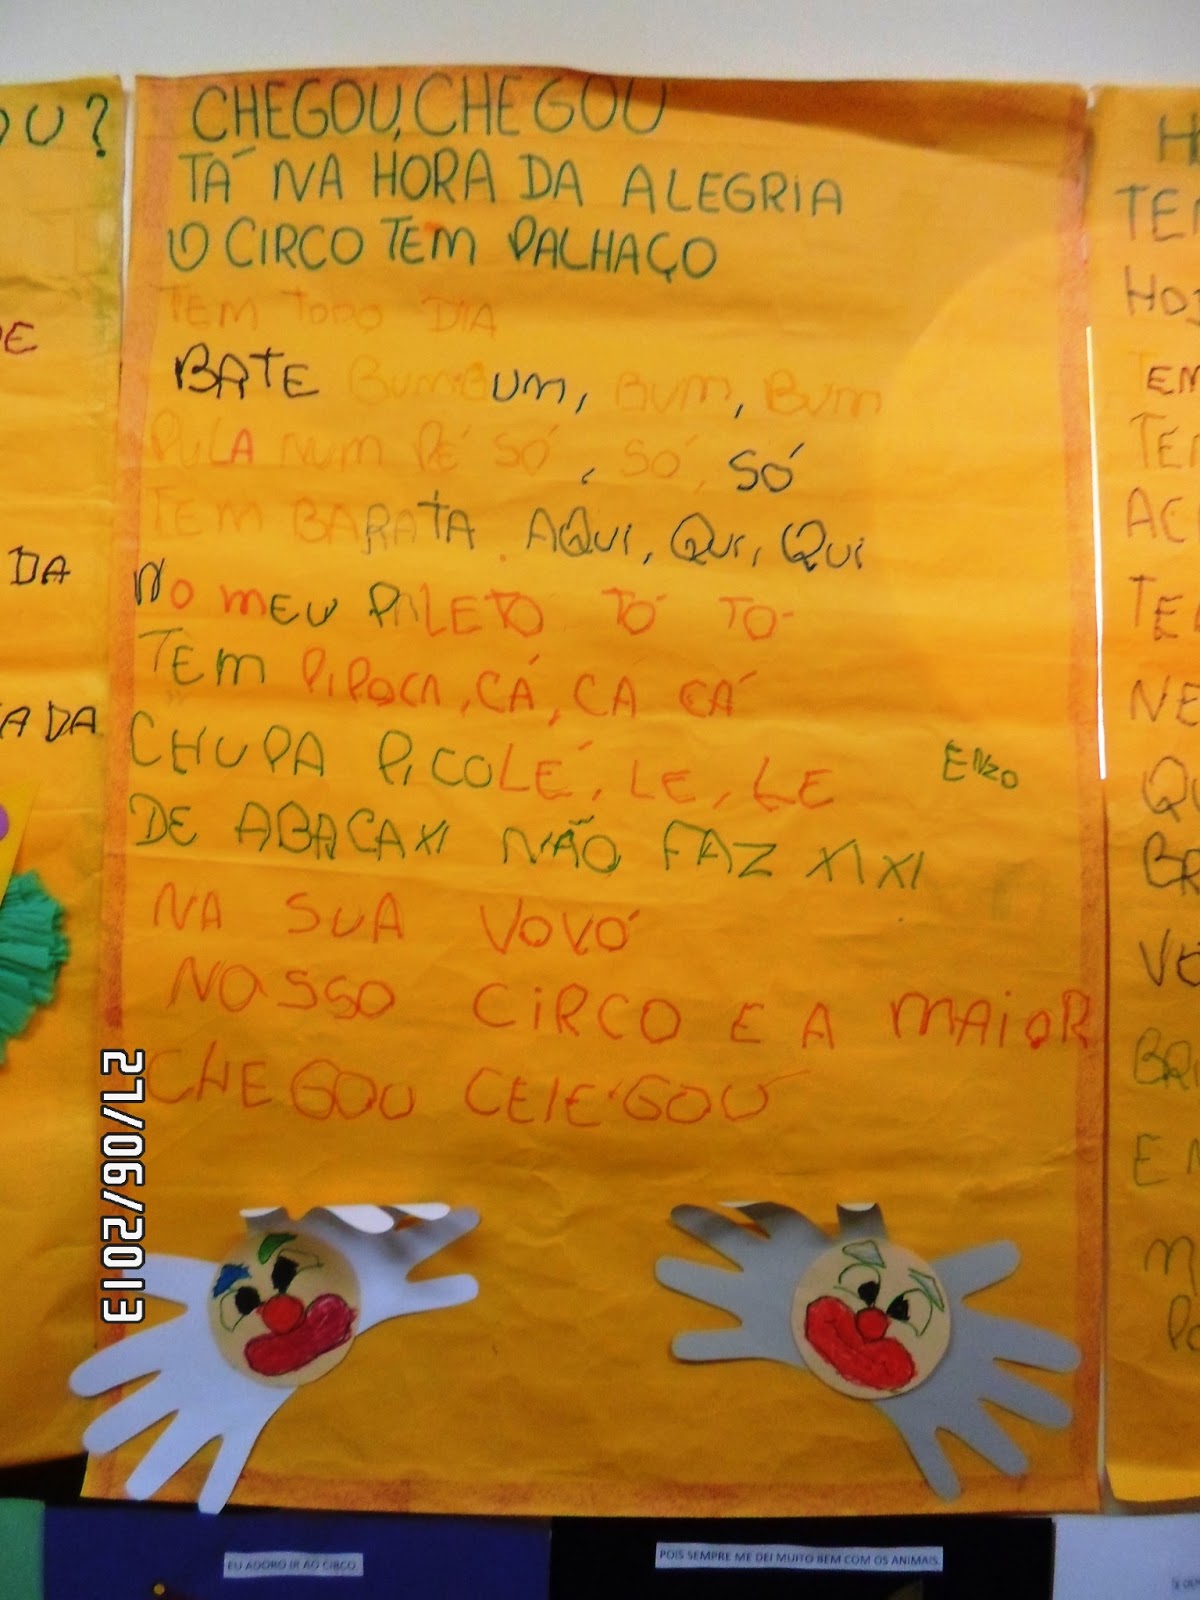 CHEGOU, CHEGOU
TÁ NA HORA DA ALEGRIA
O CIRCO TEM PALHAÇO
TEM TODO DIA
BATE BUMBUM, BUM, BUM
PULA NUM PÉ SÓ, SÓ, SÓ
TEM BARATA AQUI, QUI, QUI
NO MEU PALETO TO TO
TEM PIPOCA, CÁ, CA CÁ
CHUPA PICOLÉ, LE, LE
ENZO
DE ABACAXI NÃO FAZ XIXI
NA SUA VOVÓ
NOSSO CIRCO E A MAIOR
CHEGOU CEIEGOU
OU?
DE
DA
DA
TE
HO
TEM
TE
AC
TE
NE
QU
BR
VO
BRI
E
27/06/2013
EU ADORO IR AO CIRCO.
POIS SEMPRE ME DEI MUITO BEM COM OS ANIMAIS.